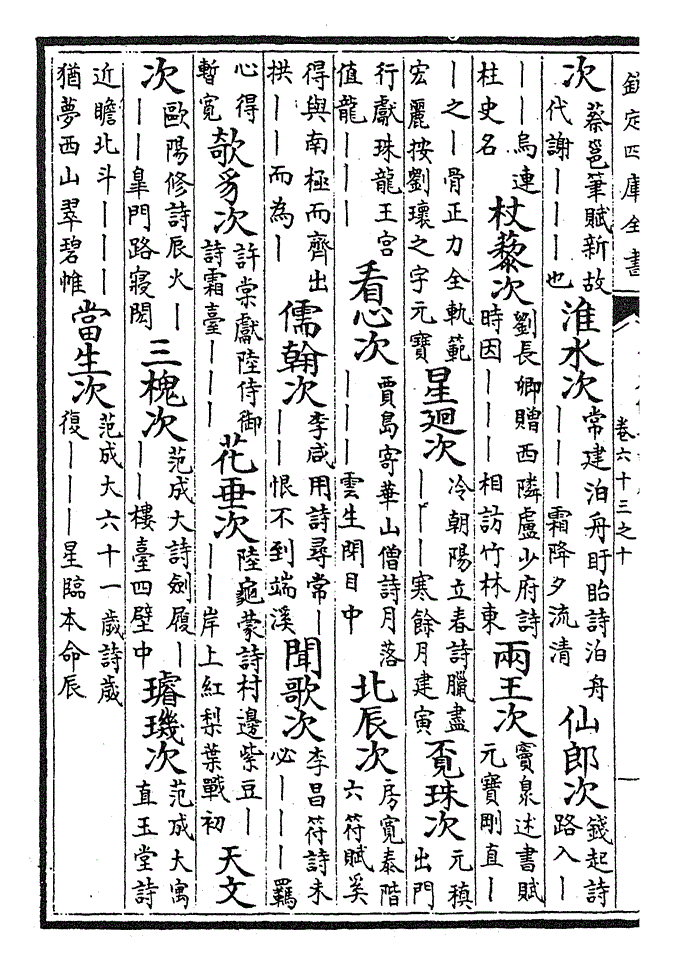 欽定四庫全書
卷六十三之十
次蔡邕筆賦新故代謝｜｜｜也淮水次常建泊舟盱眙詩泊舟｜｜｜霜降夕流清仙郎次錢起詩路入｜
｜｜烏連柱史名杖藜次劉長卿贈西隣盧少府詩時因｜｜｜相訪竹林東兩王次竇臮述書賦元寶剛直｜
｜之｜骨正力全軌範宏麗按劉瓌之字元寶星廻次冷朝陽立春詩臘盡｜｜｜寒餘月建寅覔珠次元稹出門
行獻珠龍王宮值龍｜｜｜看心次賈島寄華山僧詩月落｜｜｜雲生閉目中北辰次房寬泰階六符賦奚
得與南極而齊出拱｜｜而為｜儒翰次李咸用詩尋常｜｜｜恨不到端溪聞歌次李昌符詩未必｜｜｜羈
心得暫寬欹豸次許棠獻陸侍御詩霜臺｜｜｜花垂次陸龜蒙詩村邊紫豆｜｜｜岸上紅梨葉戰初天文
次歐陽修詩辰火｜｜｜臯門路寢閎三槐次范成大詩劍履｜｜｜樓臺四壁中璿璣次范成大寓直玉堂詩
近瞻北斗｜｜｜猶夢西山翠碧帷當生次范成大六十一歲詩歲復｜｜｜星臨本命辰